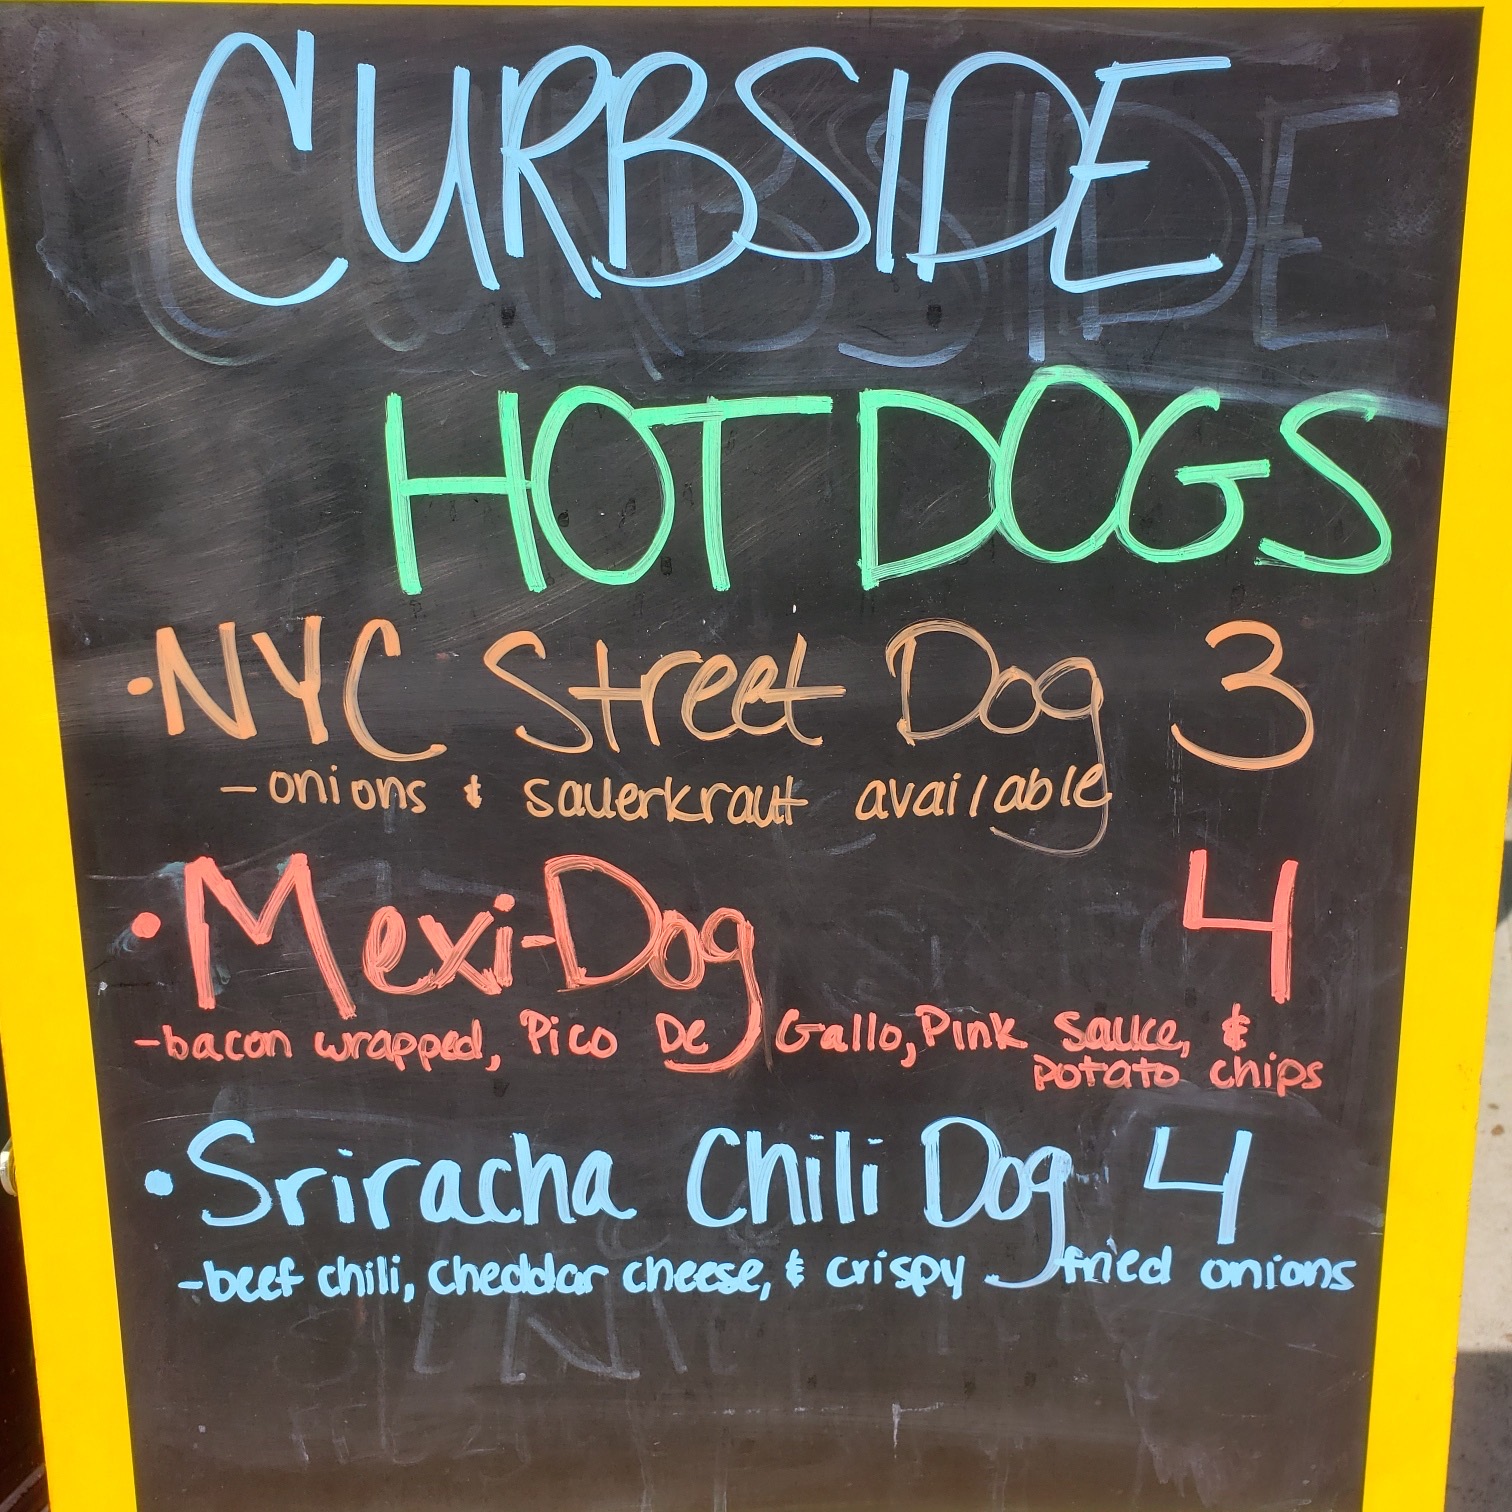 CURBSIDE
HOT DOGS
•NYC Street Dog 3
-onions & sauerkraut available
•Mexi-Dog 4
-bacon wrapped, Pico De Gallo, Pink Sauce, &
potato chips
•Sriracha Chili Dog 4
-beef chili, cheddar cheese, & crispy fried onions